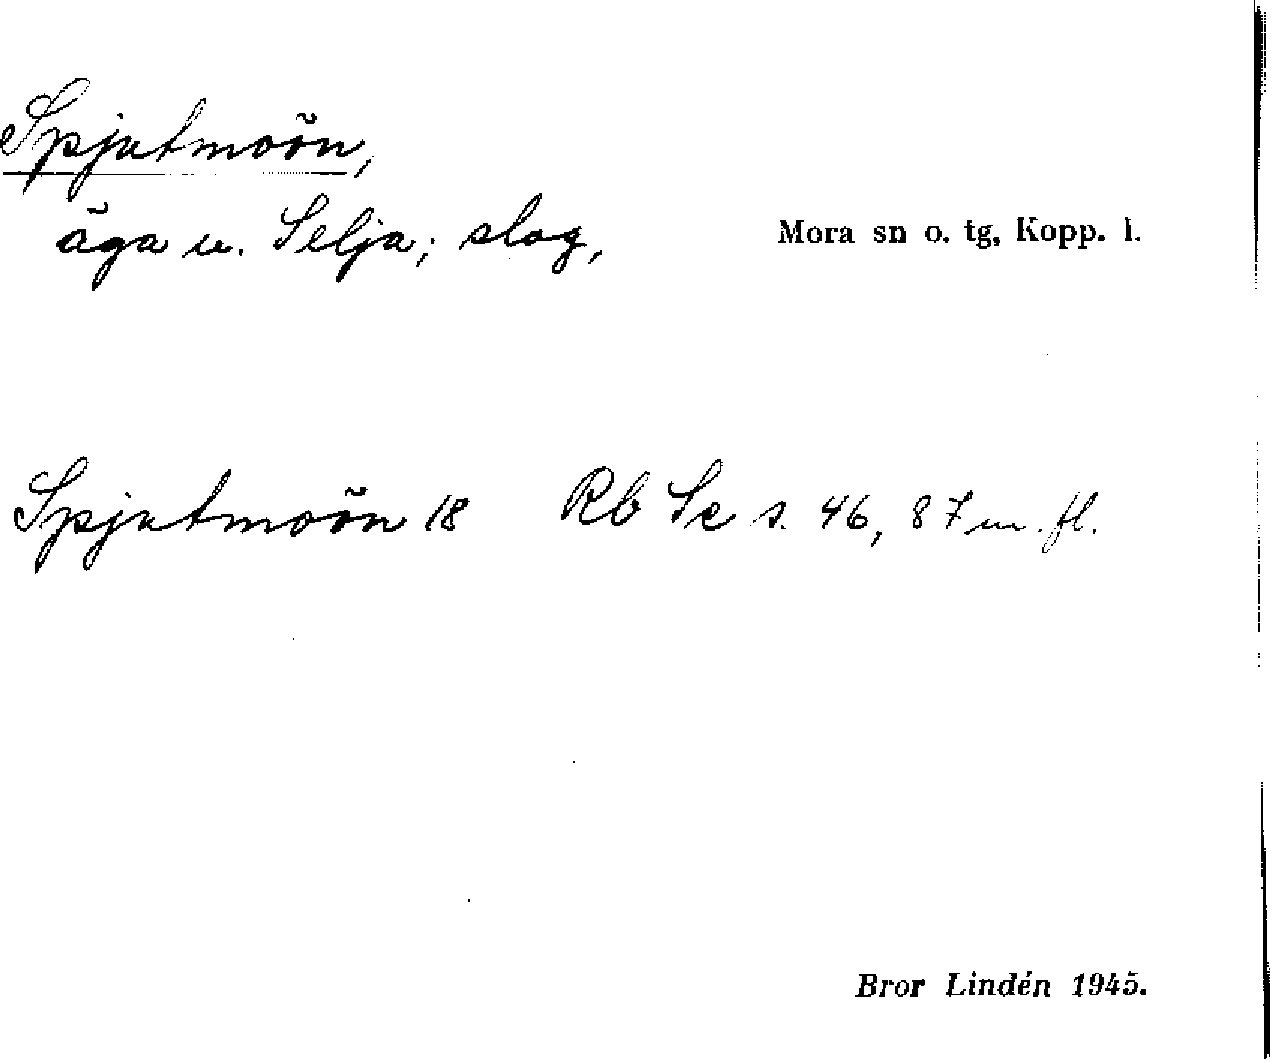 Spjutmoön,
äga u. Selja; slog,
Mora sn o. tg, Kopp. l.
Spjutmoön 18 Rb Se s. 46, 87 m. fl.
Bror Lindén 1945.